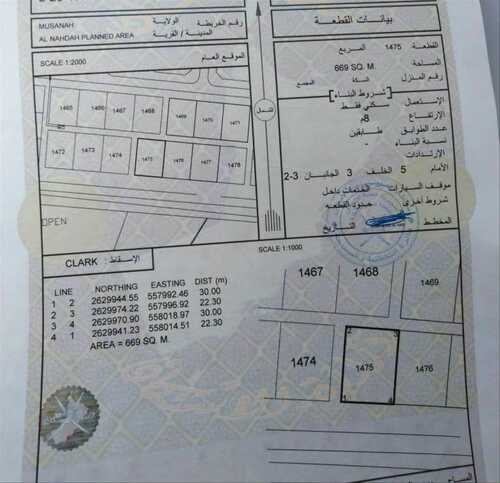 MUSANAH
الولاية
رقم الخريطة
AL NAHDAH PLANNED AREA
المدينة / القرية
SCALE 1:2000
الموقع العام
1465
1466
1467
1468
1469
1470
1471
1472
1473
1474
1475
1476
1477
1478
OPEN
الشمال
بيانات القطعة
القطعة 1475 المربع
المساحة 669 SQ. M.
رقم المنزل السكة المجمع
شروط البناء
الإستعمال سكني فقط
الإرتفاع 8م
عدد الطوابق طابقين
نسبة البناء -
الإرتدادات
الأمام 5 الخلف 3 الجانبان 2-3
موقف السيارات الخدمات داخل
شروط أخرى حدود القطعه
المخطط التاريخ
CLARK الإسقاط:
SCALE 1:1000
LINE NORTHING EASTING DIST (m)
1 2 2629944.55 557992.46 30.00
2 3 2629974.22 557996.92 22.30
3 4 2629970.90 558018.97 30.00
4 1 2629941.23 558014.51 22.30
AREA = 669 SQ. M.
1467
1468
1469
1474
1475
1476
2
3
1
4